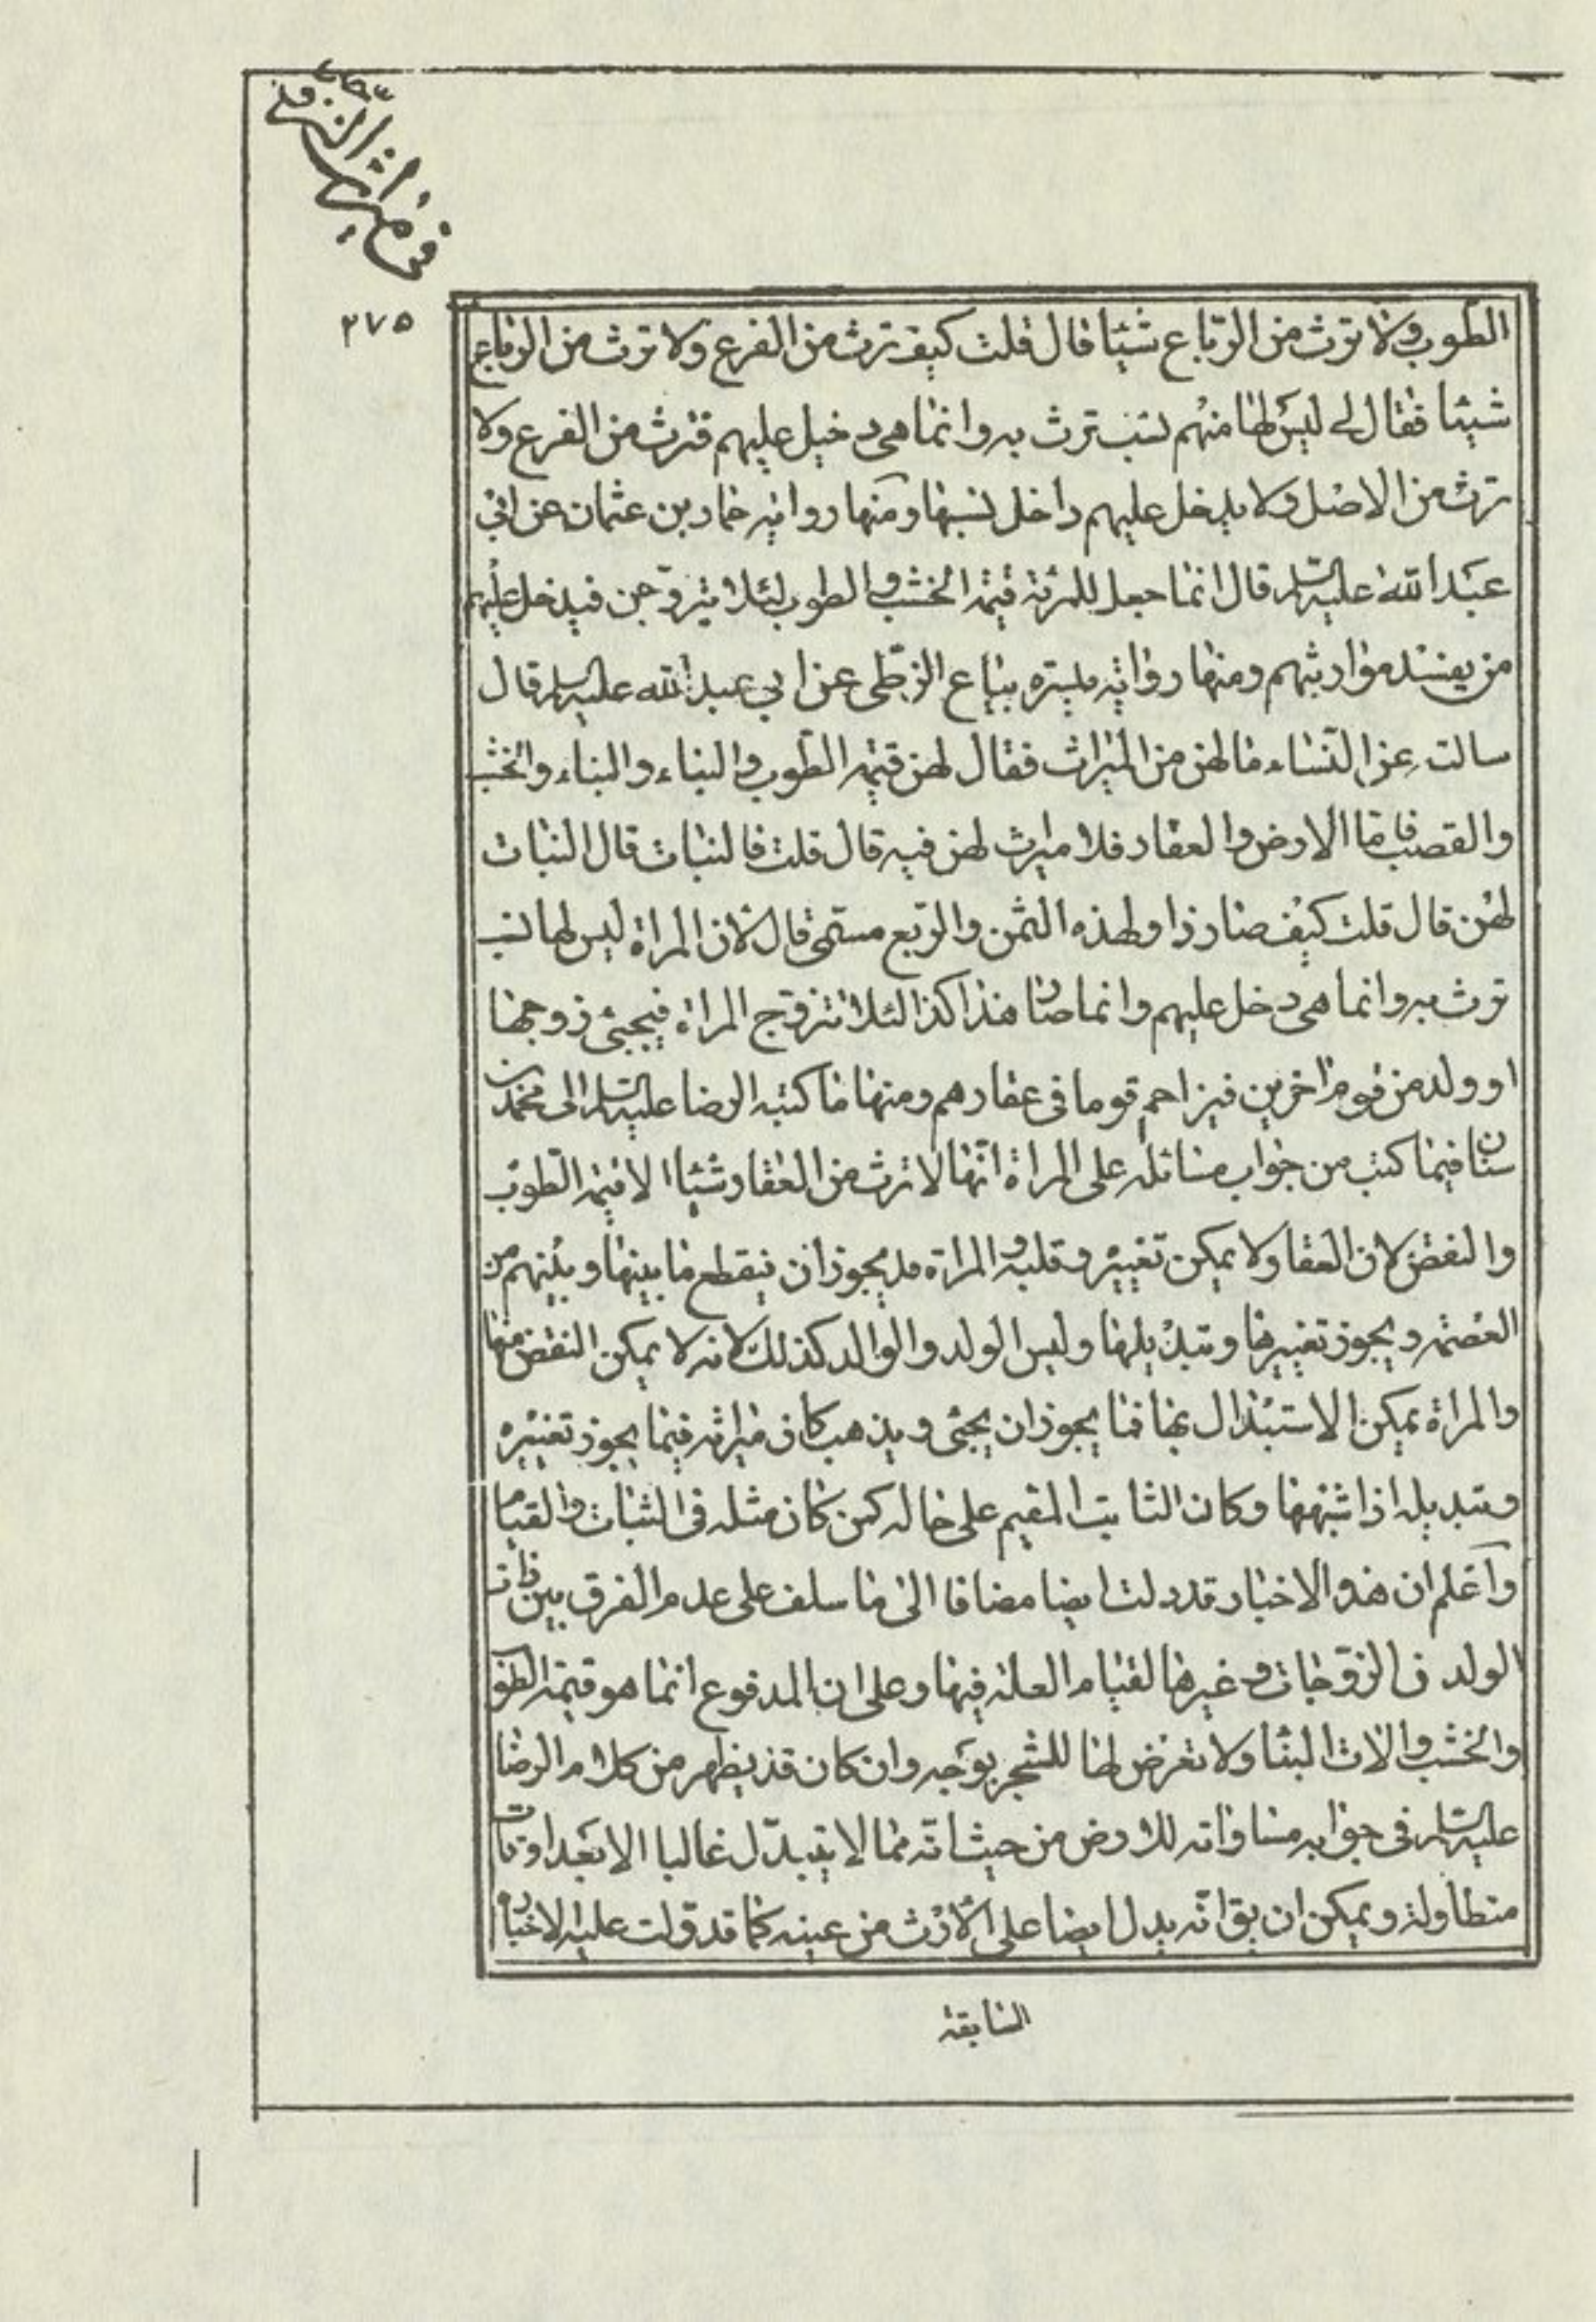 في ميراث الزوجة
٢٧٥
الطوب ولا ترث من الرباع شيئا قال قلت كيف ترث من الفرع ولا ترث من الرباع
شيئا فقال لي ليس لها منهم نسب ترث به وانما هي دخيل عليهم فترث من الفرع ولا
ترث من الاصل ولا يدخل عليهم داخل بسببها ومنها رواية حماد بن عثمان عن ابي
عبد الله عليه السلام قال انما جعل للمرئة قيمة الخشب والطوب لئلا يتزوجن فيدخل عليهم
من يفسد مواريثهم ومنها رواية ميسره بياع الزطى عن ابي عبد الله عليه السلام قال
سالته عن النساء ما لهن من الميراث فقال لهن قيمة الطوب والبناء والبناء والخشب
والقصب فاما الارض والعقار فلا ميراث لهن فيه قال قلت فالنبات قال النبات
لهن قال قلت كيف صار ذا ولهذه الثمن والربع مسمى قال لان المراة ليس لها نسب
ترث به وانما هي دخل عليهم وانما صار هذا كذا لئلا تتزوج المراة فيجيئ زوجها
او ولد من قوم اخرين فيزاحم قوما في عقارهم ومنها ما كتبه الرضا عليه السلام الى محمد بن
سنان فيما كتب من جواب مسائله على المراة انها لا ترث من العقار شيئا الا قيمة الطوب
والنقض لان العقار لا يمكن تغييره وقلبه والمراة قد يجوز ان ينقطع ما بينها وبينهم من
العصمة ويجوز تغييرها وتبديلها وليس الولد والوالد كذلك لانه لا يمكن النقض منها
والمراة يمكن الاستبدال بها فما يجوز ان يجئ ويذهب كان ميراثه فيما يجوز تغييره
وتبديله اذا شبهها وكان الثابت المقيم على حاله كمن كان مثله في الثبات والقيام
واعلم ان هذه الاخبار قد دلت ايضا مضافا الى ما سلف على عدم الفرق بين ذات
الولد من الزوجات وغيرها لقيام العلة فيها وعلى ان المدفوع انما هو قيمة الطوب
والخشب والات البنا ولا تعرض لها للشجر بوجه وان كان قد يظهر من كلام الرضا
عليه السلام في جوابه مساواته للارض من حيث انه مما لا يتبدل غالبا الا بعد اوقات
متطاولة ويمكن ان يق انه يدل ايضا على الارث من عينه كما قد دلت عليه الاخبار
السابقة